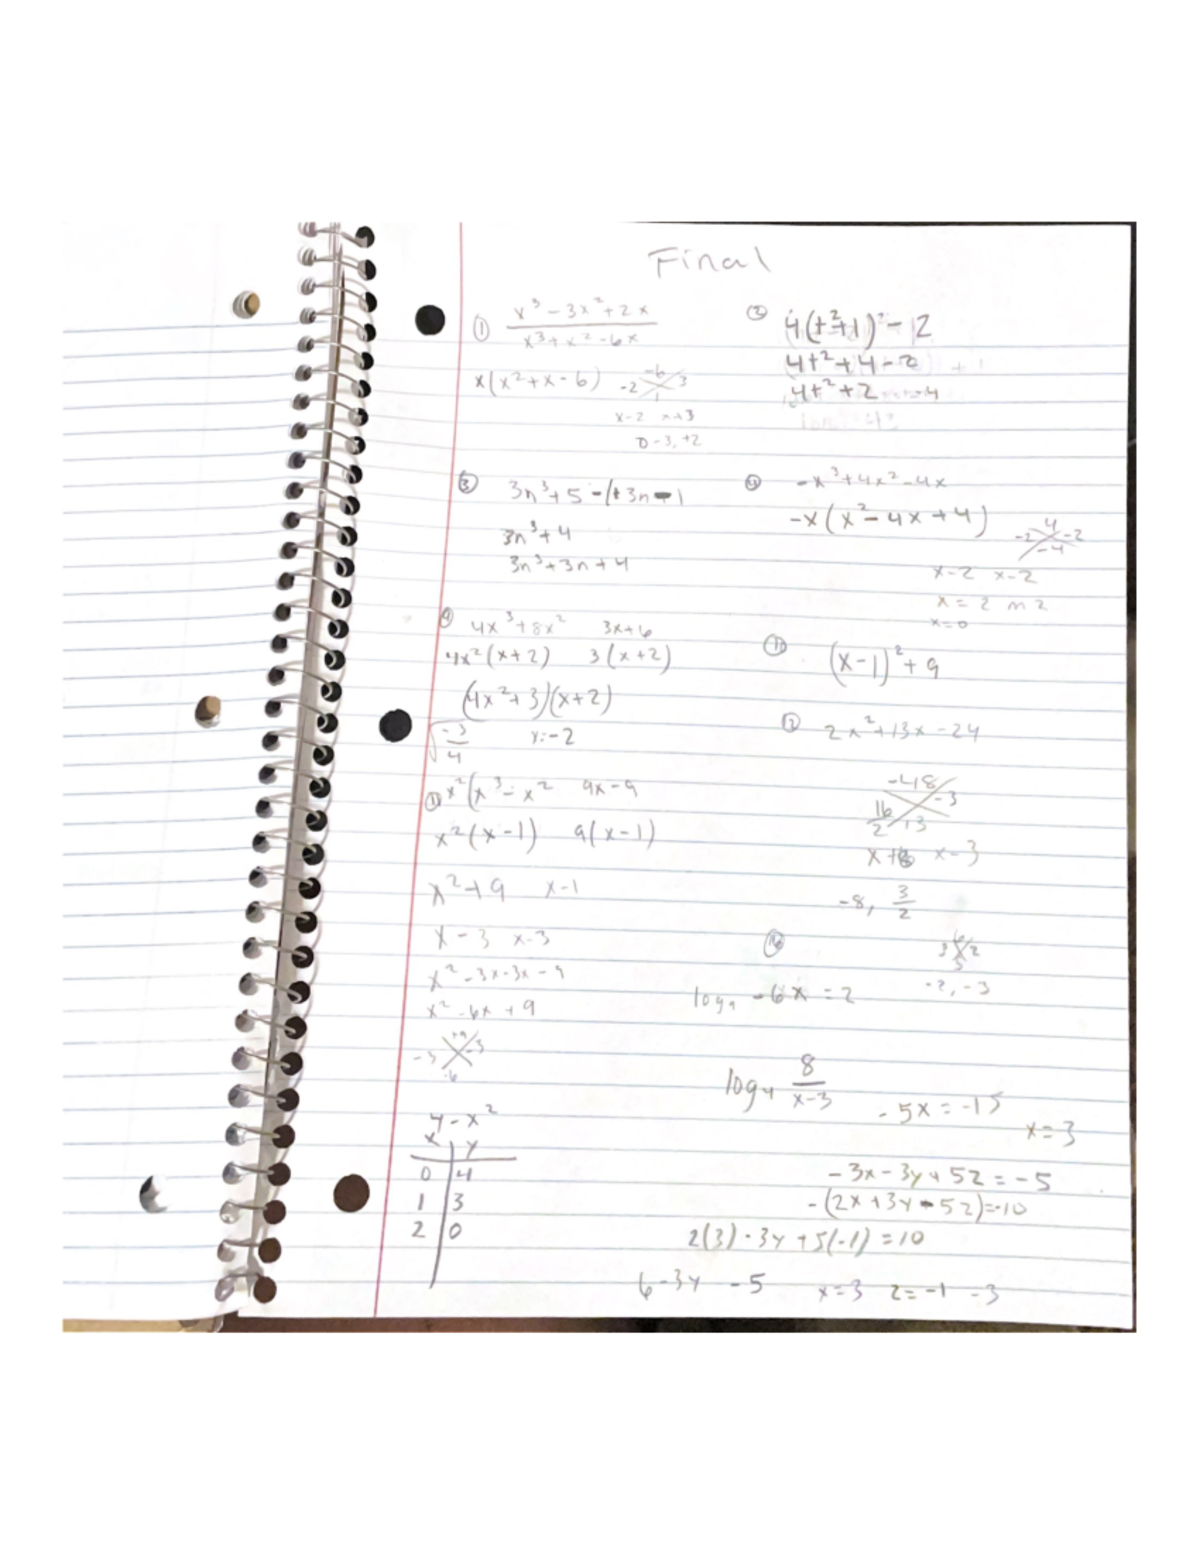 Final
① x³ - 3x² + 2x
x³ + x² - 6x
x(x² + x - 6) -6 -2 3 1
x-2 x+3
0 -3, +2
② 4(t²+1)² - 12
4t² + 4 - 2
4t² + 2
③ 3n³ + 5 - 1 + 3n - 1
3n³ + 4
3n³ + 3n + 4
④ -x³ + 4x² - 4x
-x(x² - 4x + 4) 4 -2 -2 -4
x-2 x-2
x = 2 m 2
x = 0
⑨ 4x³ + 8x² 3x+6
4x²(x+2) 3(x+2)
(4x²+3)(x+2)
√-3/4 x=-2
(x-1)² + 9
⑪ x²(x³ - x² 9x-9
x²(x-1) 9(x-1)
x²+9 x-1
x-3 x-3
x² - 3x - 3x - 9
x² - 6x + 9
+9 -3 -3 -6
⑫ 2x² + 13x - 24
-48
16 -3
2 13
x+8 x-3
-8, 3/2
⑯ 6 3 2 5
-2, -3
- 6x = 2
log₄ 8/x-3
-5x = -15
x = 3
4 - x²
x y
0 4
1 3
2 0
-3x - 3y + 5z = -5
-(2x + 3y - 5z) = -10
2(3) - 3y + 5(-1) = 10
6 - 3y - 5 x=3 z=-1 -3